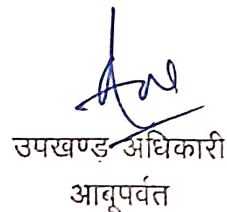 उपखण्ड अधिकारी
आबूपर्वत